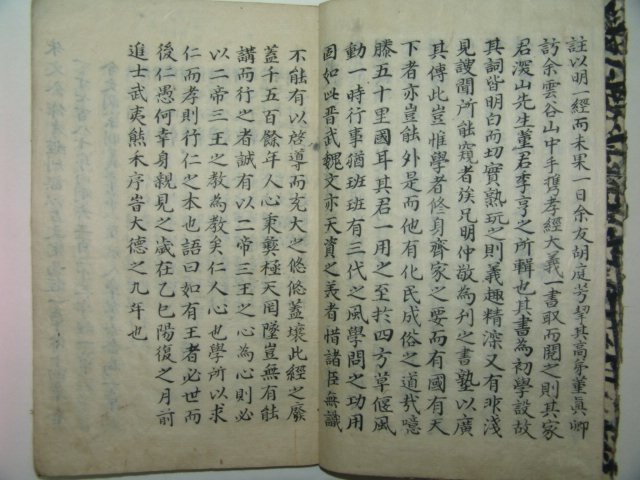 註以明一經而未果一日余友胡庭芳挈其高弟董眞卿
訪余雲谷山中手攜孝經大義一書取而閱之則其家
君深山先生董君季亨之所輯也其書為初學設故
其詞皆明白而切實熟玩之則義趣精深又有非淺
見謏聞所能窺者族兄明仲敬為刊之書塾以廣
其傳此豈惟學者修身齊家之要而有國有天
下者亦豈能外是而他有化民成俗之道哉噫
滕五十里國耳其君一用之至於四方草偃風
動一時行事猶班班有三代之風學問之功用
固如此晉武魏文亦天資之美者惜諸臣無識
不能有以啓導而充大之悠悠蓋壤此經之廢
蓋千五百餘年人心秉彝極天罔墜豈無有能
講而行之者誠有以二帝三王之心為心則必
以二帝三王之教為教矣仁人心也學所以求
仁而孝則行仁之本也語曰如有王者必世而
後仁愚何幸身親見之歲在乙巳陽復之月前
進士武夷熊禾序旹大德之九年也